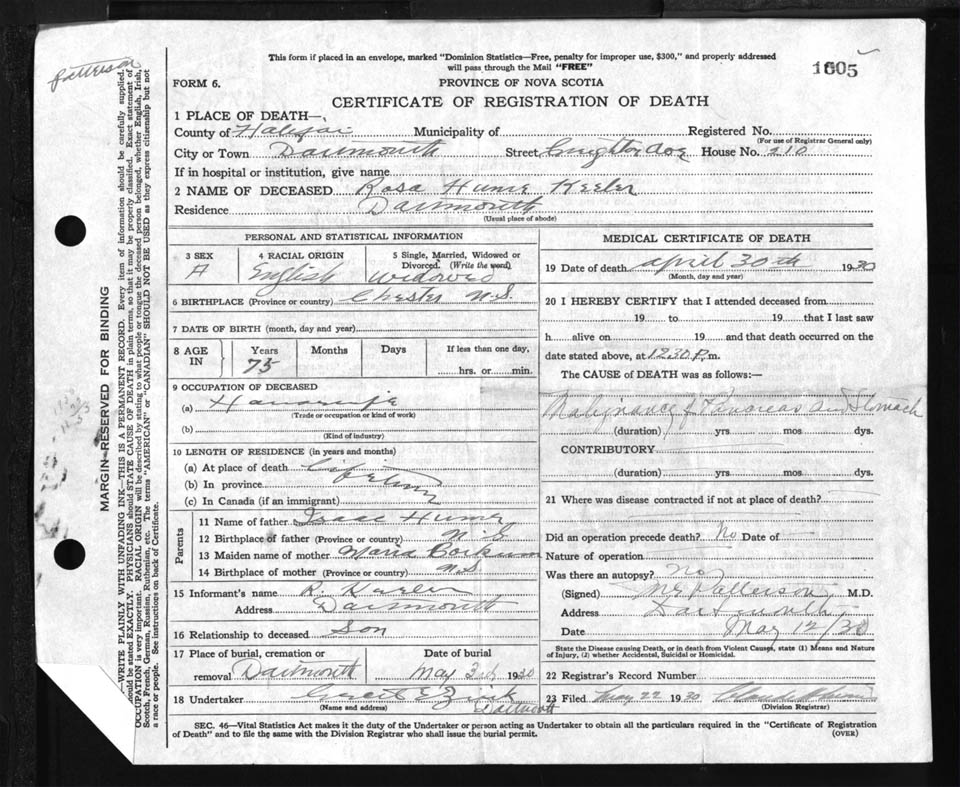 Patterson
1605
This form if placed in an envelope, marked "Dominion Statistics—Free, penalty for improper use, $300," and properly addressed
will pass through the Mail "FREE"
FORM 6.
PROVINCE OF NOVA SCOTIA
CERTIFICATE OF REGISTRATION OF DEATH
1 PLACE OF DEATH—
County of Halifax Municipality of Registered No.
(For use of Registrar General only)
City or Town Dartmouth Street Creighton Ave House No. 210
If in hospital or institution, give name
2 NAME OF DECEASED Rosa Hume Keeler
Residence Dartmouth
(Usual place of abode)
PERSONAL AND STATISTICAL INFORMATION
3 SEX 4 RACIAL ORIGIN 5 Single, Married, Widowed or
Divorced. (Write the word)
English Widowed
6 BIRTHPLACE (Province or country) Chester N.S.
7 DATE OF BIRTH (month, day and year)
8 AGE IN Years Months Days If less than one day,
75 hrs. or min.
9 OCCUPATION OF DECEASED
(a) Housewife
(Trade or occupation or kind of work)
(b)
(Kind of industry)
10 LENGTH OF RESIDENCE (in years and months)
(a) At place of death Lifetime
(b) In province
(c) In Canada (if an immigrant)
Parents
11 Name of father Isaac Hume
12 Birthplace of father (Province or country) N S
13 Maiden name of mother Maria Corkum
14 Birthplace of mother (Province or country) N.S
15 Informant's name R. Keeler
Address Dartmouth
16 Relationship to deceased Son
17 Place of burial, cremation or Date of burial
removal Dartmouth May 3rd 1930
18 Undertaker Zwick
(Name and address) Dartmouth
MEDICAL CERTIFICATE OF DEATH
19 Date of death April 30th 1930
(Month, day and year)
20 I HEREBY CERTIFY that I attended deceased from
19 to 19 that I last saw
h alive on 19 and that death occurred on the
date stated above, at 12 30 P. m.
The CAUSE of DEATH was as follows:—
Malignancy of Pancreas and Stomach
(duration) yrs. mos. dys.
CONTRIBUTORY
(duration) yrs. mos. dys.
21 Where was disease contracted if not at place of death?
Did an operation precede death? No Date of —
Nature of operation
Was there an autopsy? No
(Signed) Patterson M.D.
Address Dartmouth
Date May 12/30
State the Disease causing Death, or in death from Violent Causes, state (1) Means and Nature
of Injury, (2) whether Accidental, Suicidal or Homicidal.
22 Registrar's Record Number
23 Filed May 22 1930
(Division Registrar)
SEC. 46—Vital Statistics Act makes it the duty of the Undertaker or person acting as Undertaker to obtain all the particulars required in the "Certificate of Registration
of Death" and to file the same with the Division Registrar who shall issue the burial permit.
(OVER)
MARGIN RESERVED FOR BINDING
—WRITE PLAINLY WITH UNFADING INK—THIS IS A PERMANENT RECORD. Every item of information should be carefully supplied.
should be stated EXACTLY. PHYSICIANS should STATE CAUSE OF DEATH in plain terms, so that it may be properly classified. Exact statement of
OCCUPATION is very important. RACIAL ORIGIN will be described by stating to what people or tongue the deceased person belonged, whether English, Irish,
Scotch, French, German, Russian, Ruthenian, etc. The terms "AMERICAN" or "CANADIAN" SHOULD NOT BE USED as they express citizenship but not
a race or people. See instructions on back of Certificate.